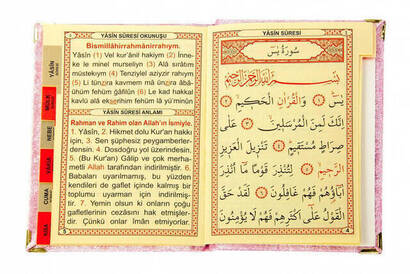 YÂSÎN SÛRESİ OKUNUŞU
Bismillâhirrahmânirrahıym.
Yâsîn (1) Vel kur'ânil hakiym (2) İnne-
ke le minel murseliyn (3) Alâ sırâtım
müstekıym (4) Tenziylel aziyzir rahıym
(5) Li tünzira kavmem mâ ünzira âbâ-
ühüm fehüm ğâfilûn (6) Le kad hakkal
kavlü alâ ekserihim fehüm lâ yü'minûn
YÂSÎN SÛRESİ ANLAMI
Rahman ve Rahim olan Allah'ın İsmiyle.
1. Yâsîn, 2. Hikmet dolu Kur'an hakkı
için, 3. Sen şüphesiz peygamberler-
densin. 4. Dosdoğru yol üzerindesin.
5. (Bu Kur'an) Gâlip ve çok merha-
metli Allah tarafından indirilmiştir. 6.
Babaları uyarılmamış, bu yüzden
kendileri de gaflet içinde kalmış bir
toplumu uyarman için indirilmiş-
tir. 7. Yemin olsun ki onların çoğu
gafletlerinin cezâsını hak etmişler-
dir. Çünkü onlar îmân etmiyorlar.
YÂSÎN
MÜLK
NEBE
VÂKIA
CUMA
YÂSÎN SÛRESİ
سُورَةُ يٰسٓ
بِسْمِ اللّٰهِ الرَّحْمٰنِ الرَّحِيمِ
يٰسٓ ﴿١﴾ وَالْقُرْاٰنِ الْحَكِيمِ ﴿٢﴾
اِنَّكَ لَمِنَ الْمُرْسَلِينَ ﴿٣﴾ عَلٰى
صِرَاطٍ مُسْتَقِيمٍ ﴿٤﴾ تَنْزِيلَ الْعَزِيزِ
الرَّحِيمِ ﴿٥﴾ لِتُنْذِرَ قَوْمًا مَٓا اُنْذِرَ
اٰبَٓاؤُهُمْ فَهُمْ غَافِلُونَ ﴿٦﴾ لَقَدْ حَقَّ
الْقَوْلُ عَلٰٓى اَكْثَرِهِمْ فَهُمْ لَا يُؤْمِنُونَ
4